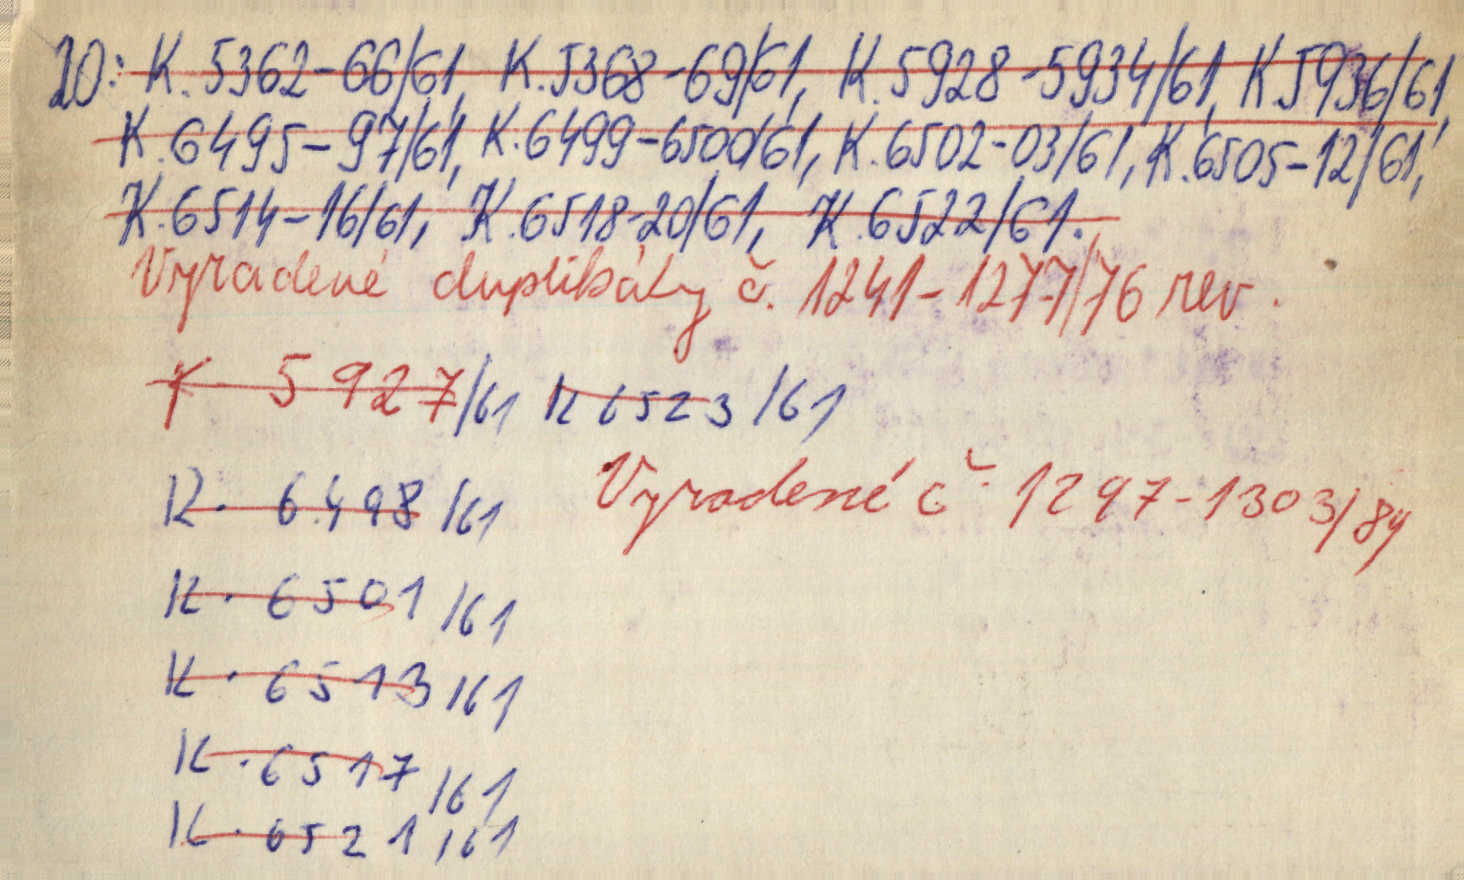 20: K. 5362-66/61, K. 5368-69/61, K. 5928-5934/61, K 5936/61,
K. 6495-97/61, K. 6499-6500/61, K. 6502-03/61, K. 6505-12/61,
K. 6514-16/61, K. 6518-20/61, K. 6522/61.
Vyradené duplikáty č. 1241-1277/76 rev.
K 5927/61 K 6523/61
K. 6498/61 Vyradené č. 1297-1303/84
K. 6501/61
K. 6513/61
K. 6517/61
K. 6521/61